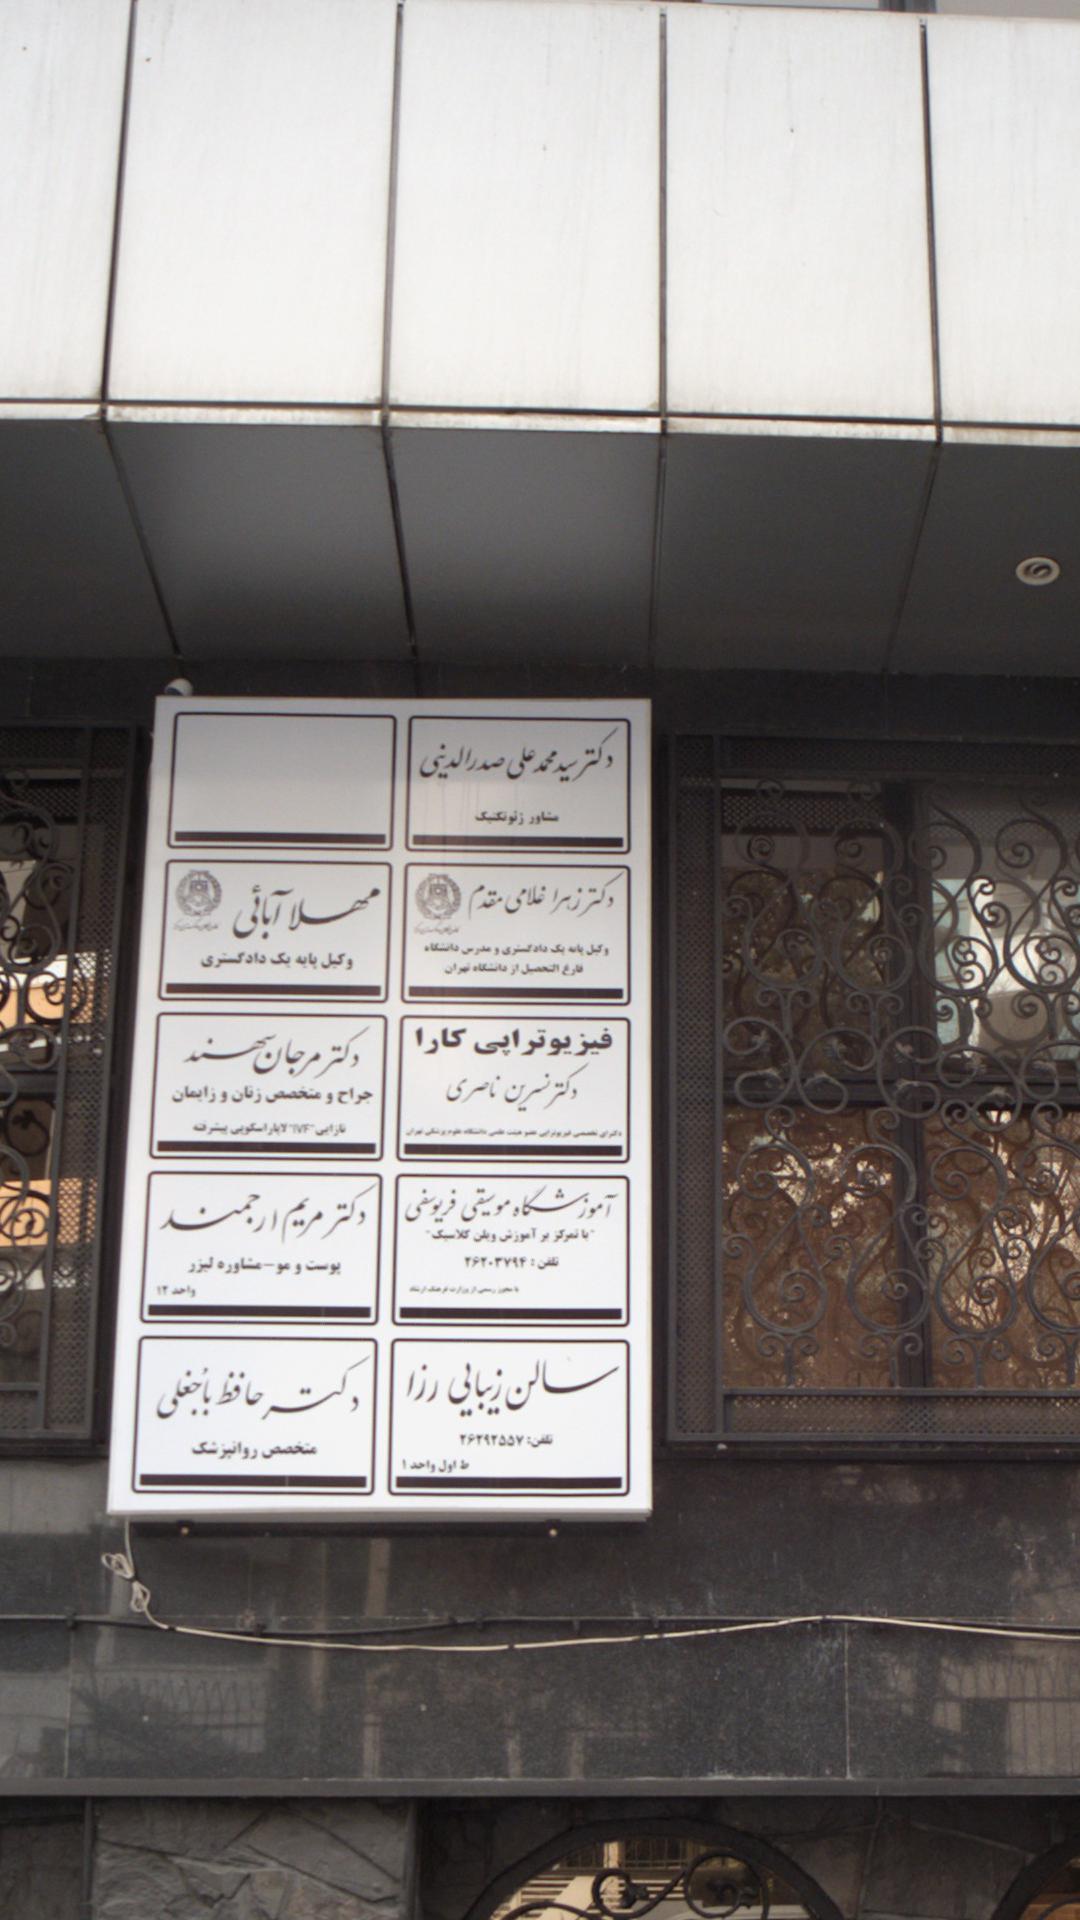 دکتر سید محمد علی صدرالدینی
مشاور ژئوتکنیک
دکتر زهرا غلامی مقدم
وکیل پایه یک دادگستری و مدرس دانشگاه
فارغ التحصیل از دانشگاه تهران
مهلا آبائی
وکیل پایه یک دادگستری
فیزیوتراپی کارا
دکتر نسرین ناصری
دکترای تخصصی فیزیوتراپی عضو هیئت علمی دانشگاه علوم پزشکی تهران
دکتر مرجان سهند
جراح و متخصص زنان و زایمان
نازایی "IVF" لاپاراسکوپی پیشرفته
آموزشگاه موسیقی فریوسفی
"با تمرکز بر آموزش ویلن کلاسیک"
تلفن : ۲۶۲۰۳۷۹۴
با مجوز رسمی از وزارت فرهنگ ارشاد
دکتر مریم ارجمند
پوست و مو-مشاوره لیزر
واحد ۱۲
سالن زیبایی رزا
تلفن: ۲۶۲۹۲۵۵۷
ط اول واحد ۱
دکتر حافظ باجُغلی
متخصص روانپزشک